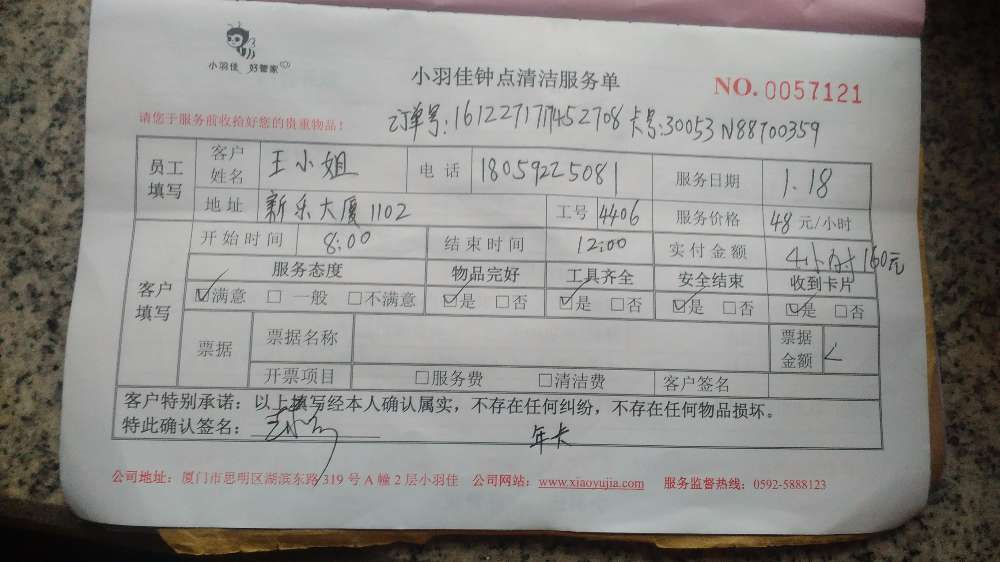 小羽佳 好管家
小羽佳钟点清洁服务单
NO. 0057121
请您于服务前收拾好您的贵重物品！
订单号:161227171452708 卡号:30053N88700359
员工填写 客户姓名 王小姐 电话 18059225081 服务日期 1.18
地址 新乐大厦1102 工号 4406 服务价格 48元/小时
开始时间 8:00 结束时间 12:00 实付金额 4小时160元
客户填写 服务态度 物品完好 工具齐全 安全结束 收到卡片
☑满意 □一般 □不满意 ☑是 □否 ☑是 □否 ☑是 □否 ☑是 □否
票据 票据名称 票据金额
开票项目 □服务费 □清洁费 客户签名
客户特别承诺：以上填写经本人确认属实，不存在任何纠纷，不存在任何物品损坏。
特此确认签名：
年卡
公司地址：厦门市思明区湖滨东路319号A幢2层小羽佳 公司网站：www.xiaoyujia.com 服务监督热线：0592-5888123